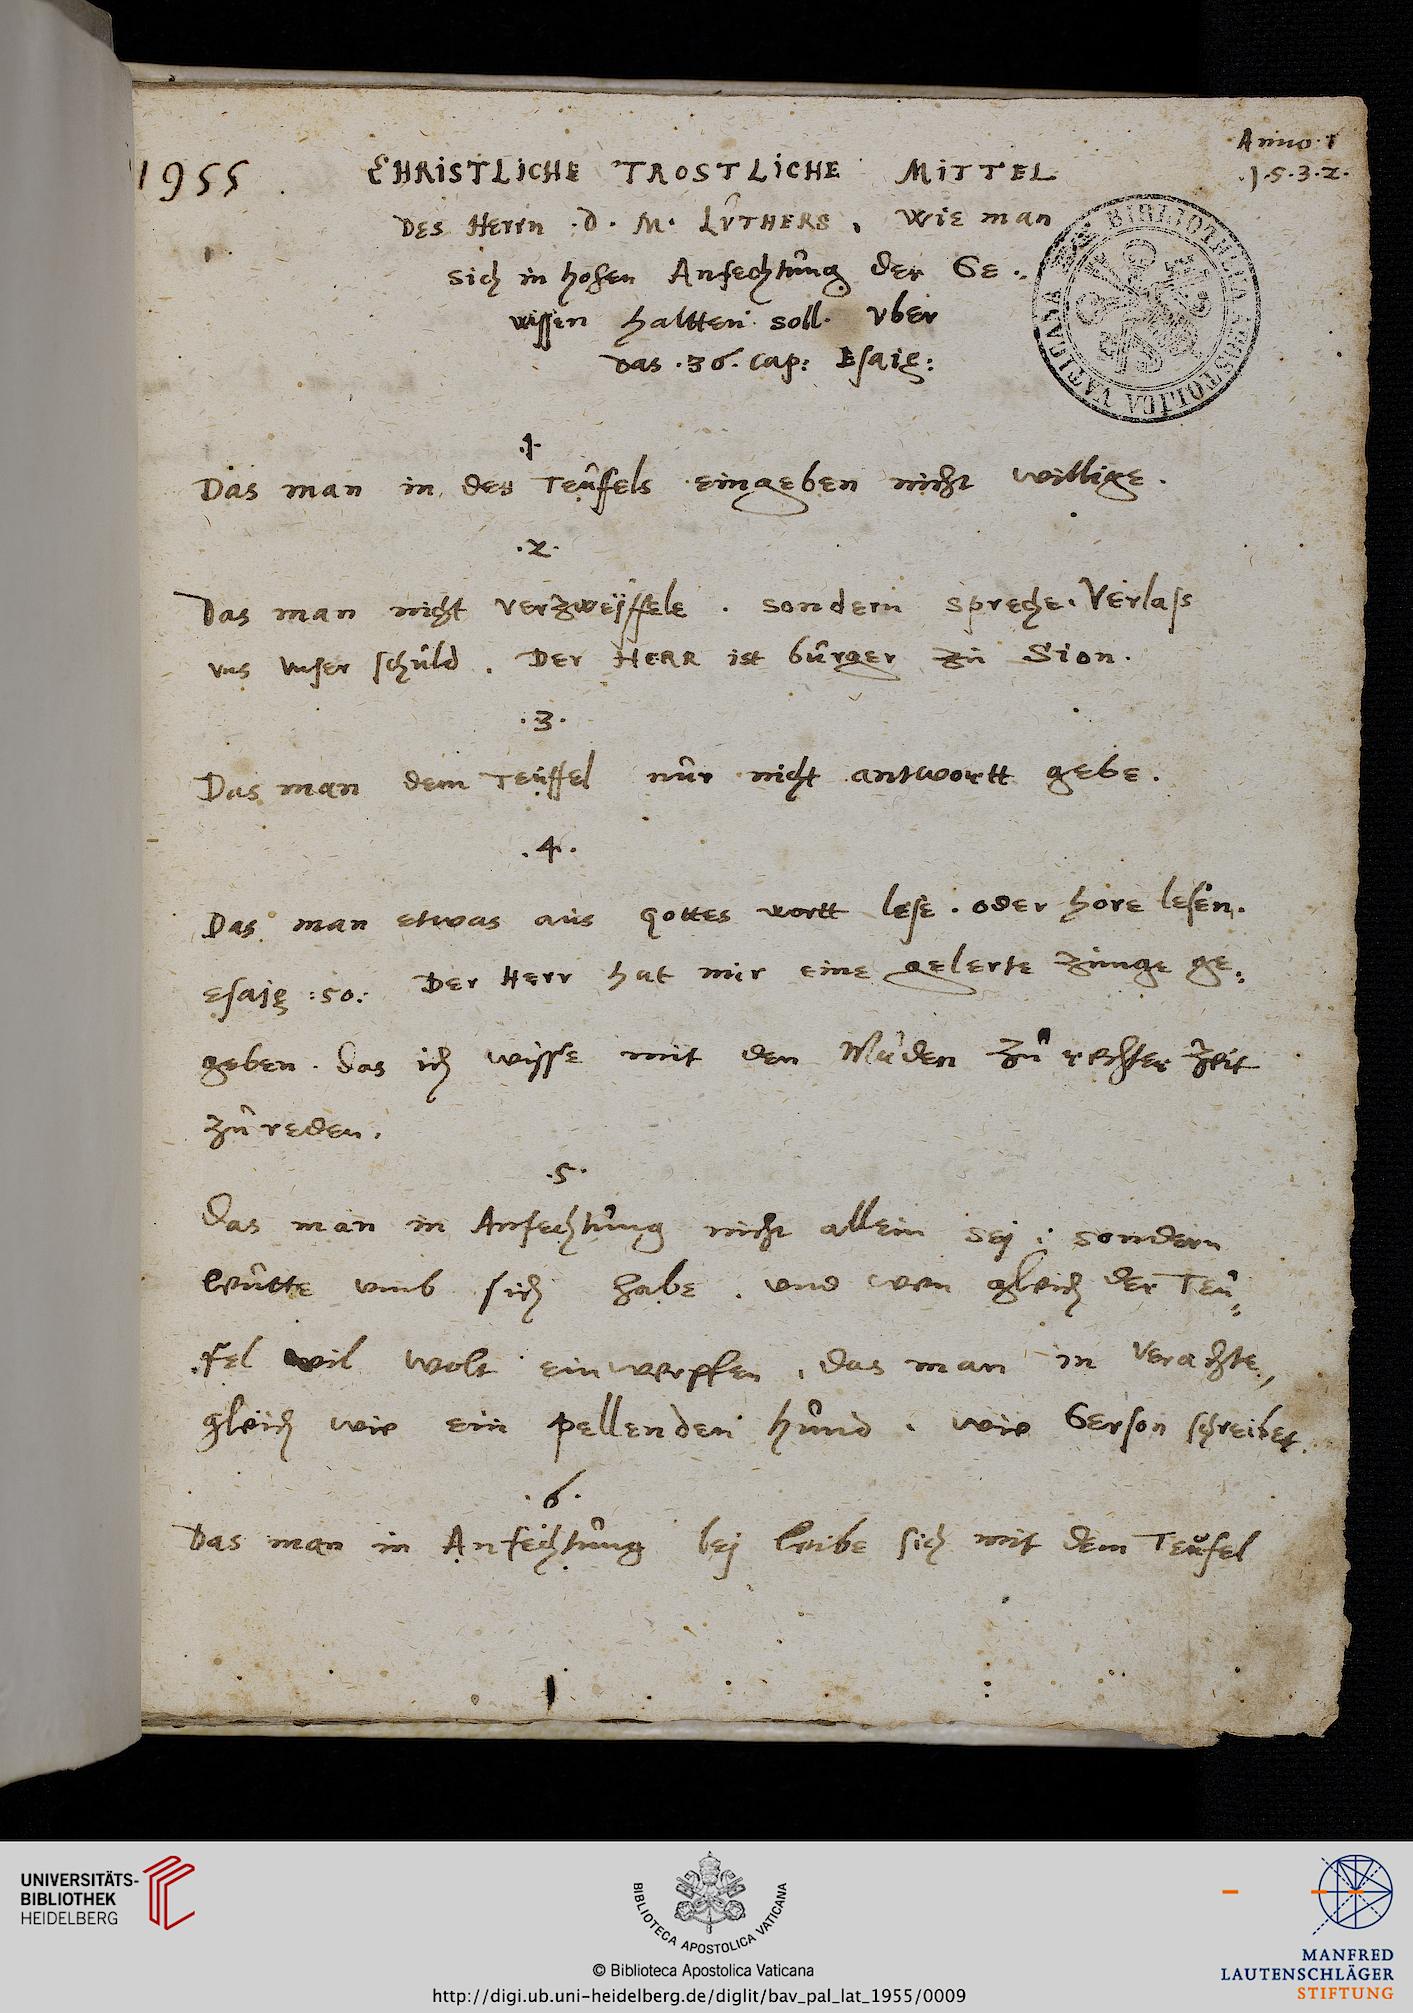 Anno 1
.1.5.3.2.
1955.
CHRISTLICHE TROSTLICHE MITTEL
DES Herrn .D. M. LûTHERS, Wie man
sich in hohen Anfechtûng der Ge..
wissen haltten soll. Vber
das .36. Cap: Esaię:
.1.
Das man in des Teûfels eingeben nicht willige.
.2.
Das man nicht verzweÿffele . sondern spreche. Verlass
vns vnser schûld . Der HERR ist bûrger zû Sion.
.3.
Das man dem Teûffel nûr nicht antwortt gebe.
.4.
Das man etwas aûs gottes wortt lese . oder hore lesen.
esaię :50: Der Herr hat mir eine gelerte zûnge ge:
geben . das ich wisse mit den Mûden zû rechter zeit
zû reden.
.5.
Das man in Anfechtûng nicht allein seÿ : sondern
leûtte vmb sich habe . vnd wen gleich der Teû:
fel wil wolt einwerffen , das man in verachte,
gleich wie ein pellenden hûnd . wie Gerson schreibet.
.6.
Das man in Anfechtûng beÿ leibe sich mit dem Teûfel
BIBLIOTHECA APOSTOLICA VATICANA
UNIVERSITÄTS-
BIBLIOTHEK
HEIDELBERG
BIBLIOTECA APOSTOLICA VATICANA
© Biblioteca Apostolica Vaticana
http://digi.ub.uni-heidelberg.de/diglit/bav_pal_lat_1955/0009
MANFRED
LAUTENSCHLÄGER
STIFTUNG